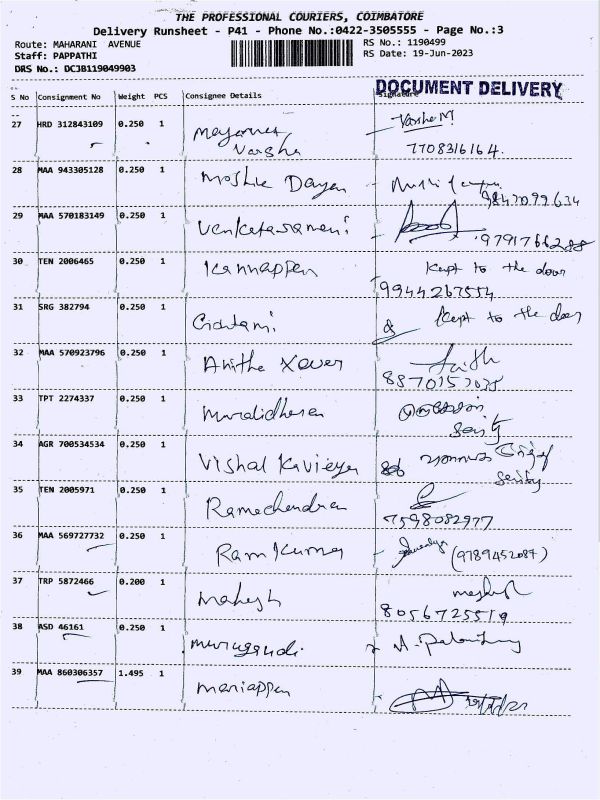 THE PROFESSIONAL COURIERS, COIMBATORE
Delivery Runsheet - P41 - Phone No.:0422-3505555 - Page No.:3
Route: MAHARANI AVENUE
RS No.: 1190499
Staff: PAPPATHI
RS Date: 19-Jun-2023
DRS No.: DCJB119049903
DOCUMENT DELIVERY
S No Consignment No Weight PCS Consignee Details Signature
27 HRD 312843109 0.250 1 Varsha M
Varsha 7708316164.
28 MAA 943305128 0.250 1 Moshie Dayan
9843099634
29 MAA 570183149 0.250 1 Venkataramani
9791766288
30 TEN 2006465 0.250 1 Kannappan Kept to the door
9944267554
31 SRG 382794 0.250 1 Gautami Kept to the door
32 MAA 570923796 0.250 1 Anitha Xaver
33 TPT 2274337 0.250 1 Muralidharan
34 AGR 700534534 0.250 1 Vishal Kavieya
35 TEN 2005971 0.250 1 Ramachandran
7598082977
36 MAA 569727732 0.250 1 Ram Kumar (9789452087)
37 TRP 5872466 0.200 1 Mahesh
8056725519
38 ASD 46161 0.250 1 Murugandi
39 MAA 860306357 1.495 1 Mariappan